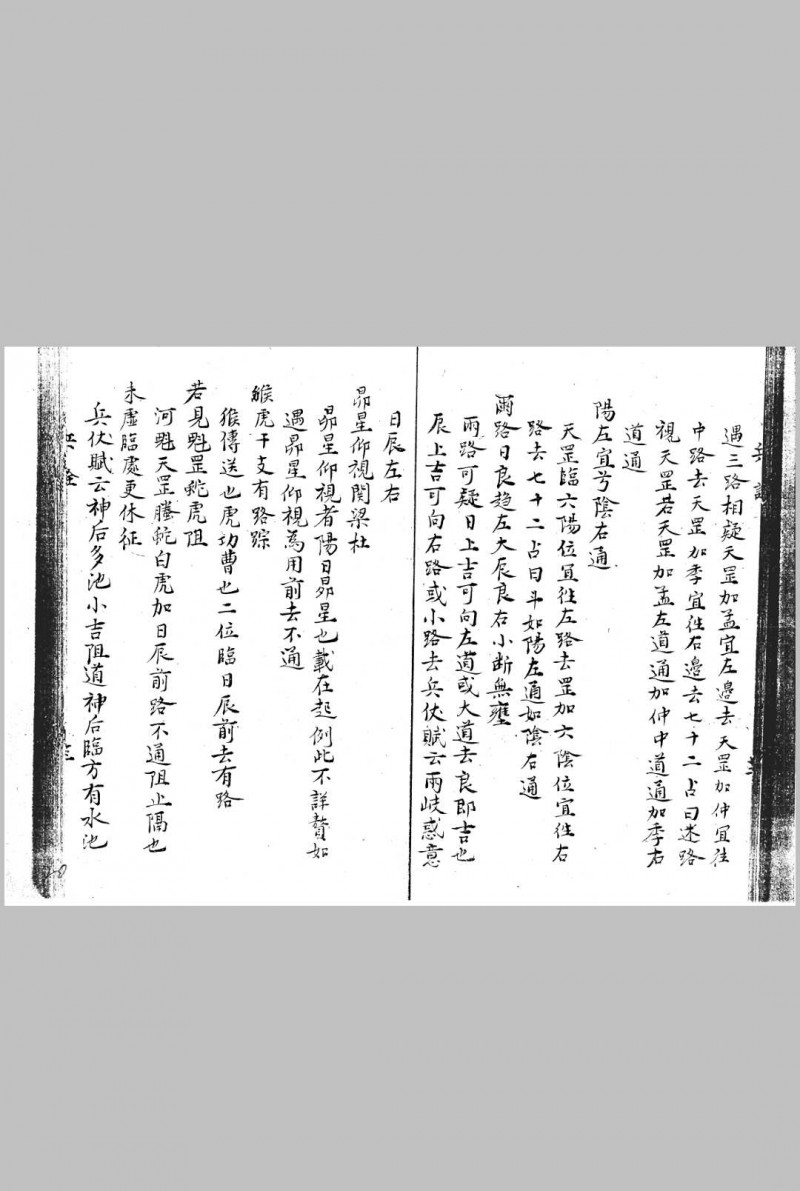 遇三路相疑天罡加孟宜左邉去天罡加仲宜徃
中路去天罡加季宜徃右邉去七十二占曰迷路
視天罡若天罡加孟左道通加仲中道通加季右
道通
陽左宜兮陰右通
天罡臨六陽位宜徃左路去罡加六陰位宜徃右
路去七十二占曰斗如陽左通如陰右通
兩路日良趋左大辰良右小断無壅
兩路可疑日上吉可向左道或大道去良即吉也
辰上吉可向右路或小路去兵伏賦云兩岐惑意
日辰左右
昴星仰視関梁杜
昴星仰視者陽日昴星也載在起例此不詳贅如
遇昴星仰視為用前去不通
猴虎干支有路踪
猴傳送也虎功曹也二位臨日辰前去有路
若見魁罡蛇虎阻
河魁天罡螣蛇白虎加日辰前路不通阻止隔也
未虛臨處更休征
兵伏賦云神后多池小吉阻道神后臨方有水池
兵
三